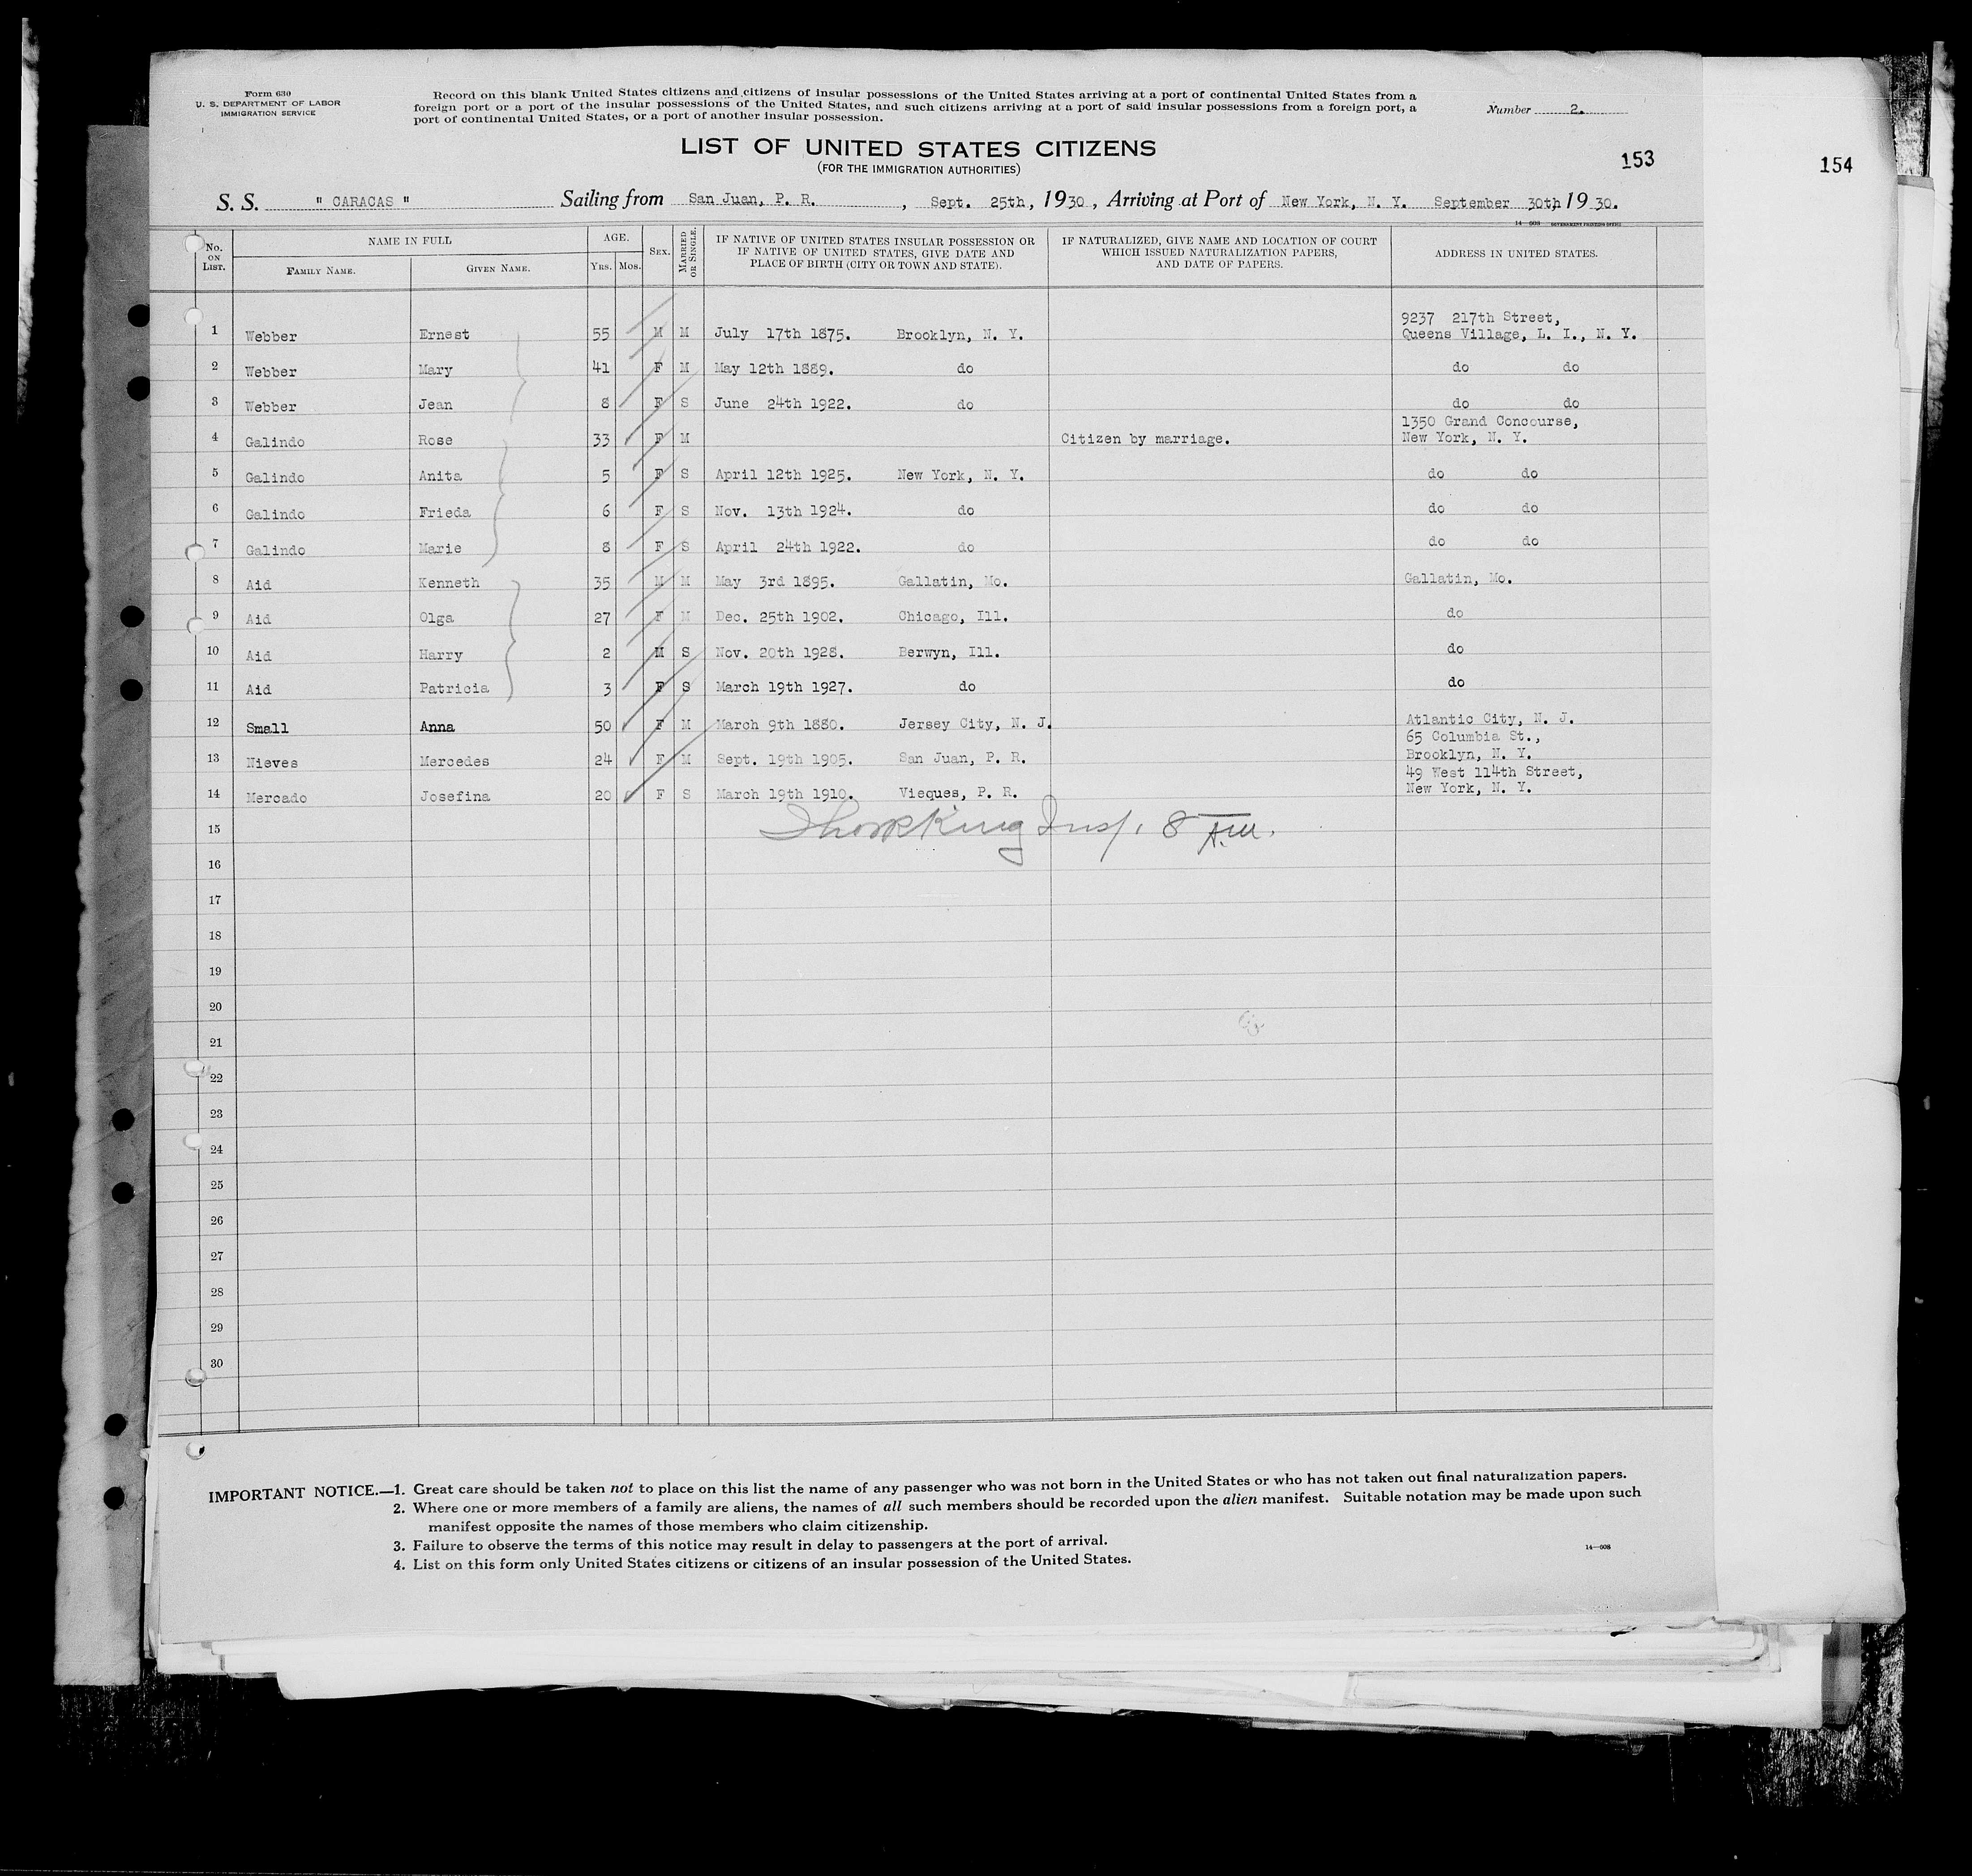 Form 630
U. S. DEPARTMENT OF LABOR
IMMIGRATION SERVICE
Record on this blank United States citizens and citizens of insular possessions of the United States arriving at a port of continental United States from a
foreign port or a port of the insular possessions of the United States, and such citizens arriving at a port of said insular possessions from a foreign port, a
port of continental United States, or a port of another insular possession.
Number 2.
LIST OF UNITED STATES CITIZENS
(FOR THE IMMIGRATION AUTHORITIES)
153
154
S. S. " CARACAS " Sailing from San Juan, P. R. , Sept. 25th, 1930, Arriving at Port of New York, N. Y. September 30th, 1930.
14—608 GOVERNMENT PRINTING OFFICE
No. ON LIST. NAME IN FULL AGE. SEX. MARRIED OR SINGLE. IF NATIVE OF UNITED STATES INSULAR POSSESSION OR IF NATIVE OF UNITED STATES, GIVE DATE AND PLACE OF BIRTH (CITY OR TOWN AND STATE). IF NATURALIZED, GIVE NAME AND LOCATION OF COURT WHICH ISSUED NATURALIZATION PAPERS, AND DATE OF PAPERS. ADDRESS IN UNITED STATES.
FAMILY NAME. GIVEN NAME. YRS. MOS.
9237 217th Street,
1 Webber Ernest 55 M M July 17th 1875. Brooklyn, N. Y. Queens Village, L. I., N. Y.
2 Webber Mary 41 F M May 12th 1889. do do do
3 Webber Jean 8 F S June 24th 1922. do do do
1350 Grand Concourse,
4 Galindo Rose 33 F M Citizen by marriage. New York, N. Y.
5 Galindo Anita 5 F S April 12th 1925. New York, N. Y. do do
6 Galindo Frieda 6 F S Nov. 13th 1924. do do do
7 Galindo Marie 8 F S April 24th 1922. do do do
8 Aid Kenneth 35 M M May 3rd 1895. Gallatin, Mo. Gallatin, Mo.
9 Aid Olga 27 F M Dec. 25th 1902. Chicago, Ill. do
10 Aid Harry 2 M S Nov. 20th 1928. Berwyn, Ill. do
11 Aid Patricia 3 F S March 19th 1927. do do
12 Small Anna 50 F M March 9th 1880. Jersey City, N. J. Atlantic City, N. J.
65 Columbia St.,
13 Nieves Mercedes 24 F M Sept. 19th 1905. San Juan, P. R. Brooklyn, N. Y.
49 West 114th Street,
14 Mercado Josefina 20 F S March 19th 1910. Vieques, P. R. New York, N. Y.
15 Insp. 8 A.M.
16
17
18
19
20
21
22
23
24
25
26
27
28
29
30
IMPORTANT NOTICE.—1. Great care should be taken not to place on this list the name of any passenger who was not born in the United States or who has not taken out final naturalization papers.
2. Where one or more members of a family are aliens, the names of all such members should be recorded upon the alien manifest. Suitable notation may be made upon such
manifest opposite the names of those members who claim citizenship.
3. Failure to observe the terms of this notice may result in delay to passengers at the port of arrival.
4. List on this form only United States citizens or citizens of an insular possession of the United States.
14—608